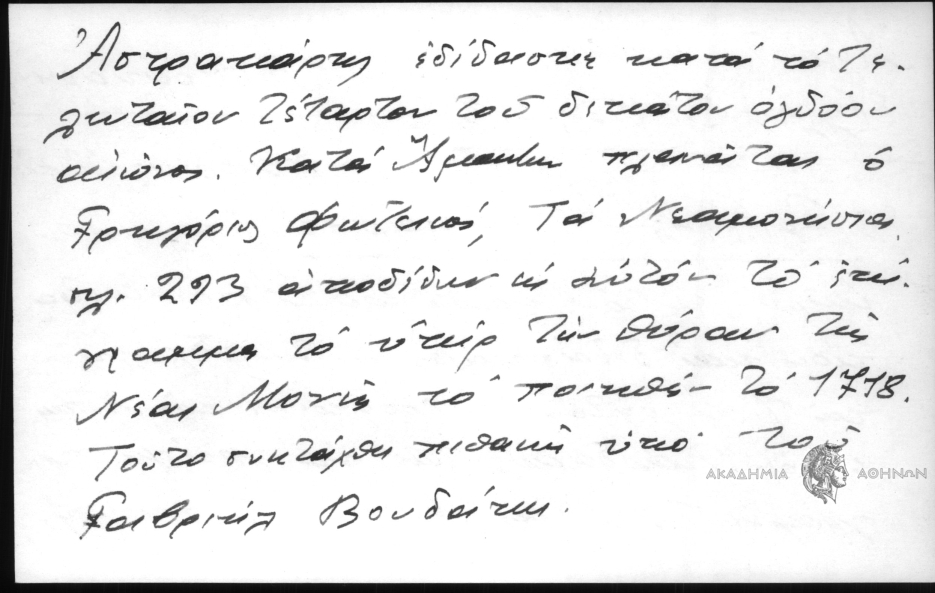 Ἀστρακάρης ἐδίδασκε κατά τό τε-
λευταῖον τέταρτον τοῦ δεκάτου ὀγδόου
αἰῶνος. Κατά πλανᾶται ὁ
Γρηγόριος Φωτεινός, Τά Νεαμονήσια,
σλ. 293 ἀποδίδων εἰς αὐτόν τό ἐπί-
γραμμα τό ὑπέρ τήν θύραν τῆς
Νέας Μονῆς τό ποιηθέν τό 1718.
Τοῦτο συνετάχθη πιθανῶς ὑπό τοῦ
Γαβριήλ Βουδάκη.
ΑΚΑΔΗΜΙΑ ΑΘΗΝΩΝ